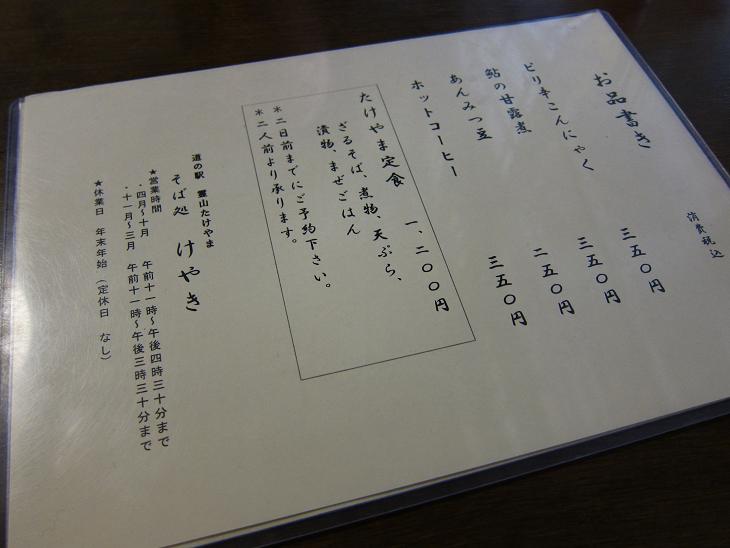 お品書き
消費税込
ピリ辛こんにゃく 三五〇円
鮎の甘露煮 三五〇円
あんみつ豆 二五〇円
ホットコーヒー 三五〇円
たけやま定食 一、二〇〇円
ざるそば、煮物、天ぷら、
漬物、まぜごはん
＊二日前までにご予約下さい。
＊二人前より承ります。
道の駅 霊山たけやま
そば処 けやき
★営業時間
・四月～十月 午前十一時～午後四時三十分まで
・十一月～三月 午前十一時～午後三時三十分まで
★休業日 年末年始（定休日 なし）